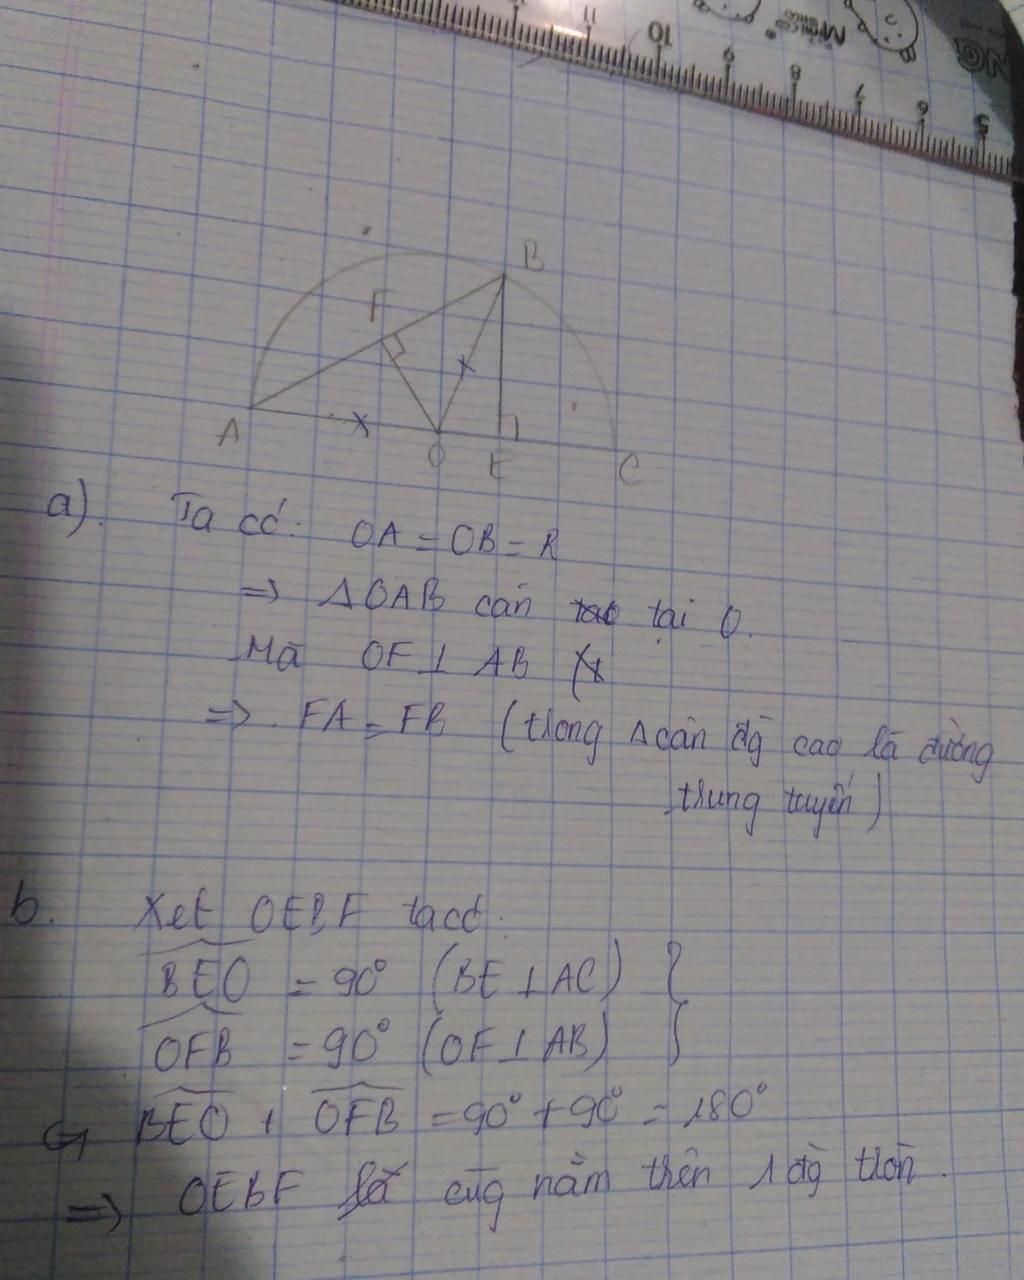 11 10 9 8 7 6 5
B
F
A O E C
a). Ta có: OA = OB = R
=> ΔOAB cân tại O.
Mà OF ⊥ AB
=> FA = FB (trong Δ cân đg cao là đường
trung tuyến)
b. Xet OEBF ta có.
BEO = 90° (BE ⊥ AC) }
OFB = 90° (OF ⊥ AB)
BEO + OFB = 90° + 90° = 180°
=> OEBF cùg nằm trên 1 đg tròn.